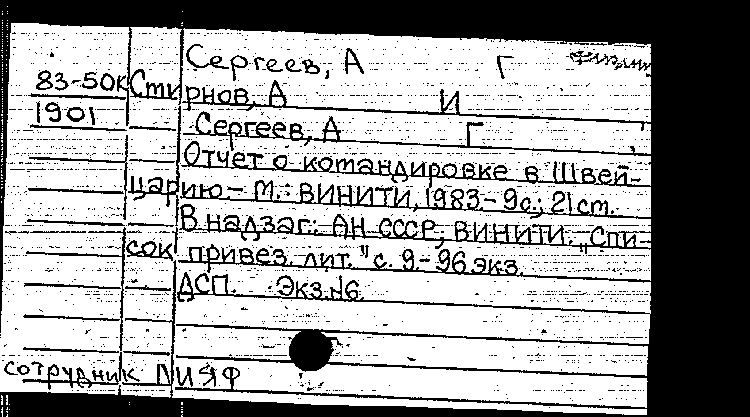 Сергеев, А Г
83-50К Смирнов, А И
1901 Сергеев, А Г,
Отчет о командировке в Швей-
царию.- М.: ВИНИТИ, 1983.- 9с.; 21 ст.
В надзаг.: АН СССР, ВИНИТИ. „Спи-
сок привез. лит." с. 9.- 96 экз.
ДСП. Экз.№6.
сотрудник ЛИЯФ